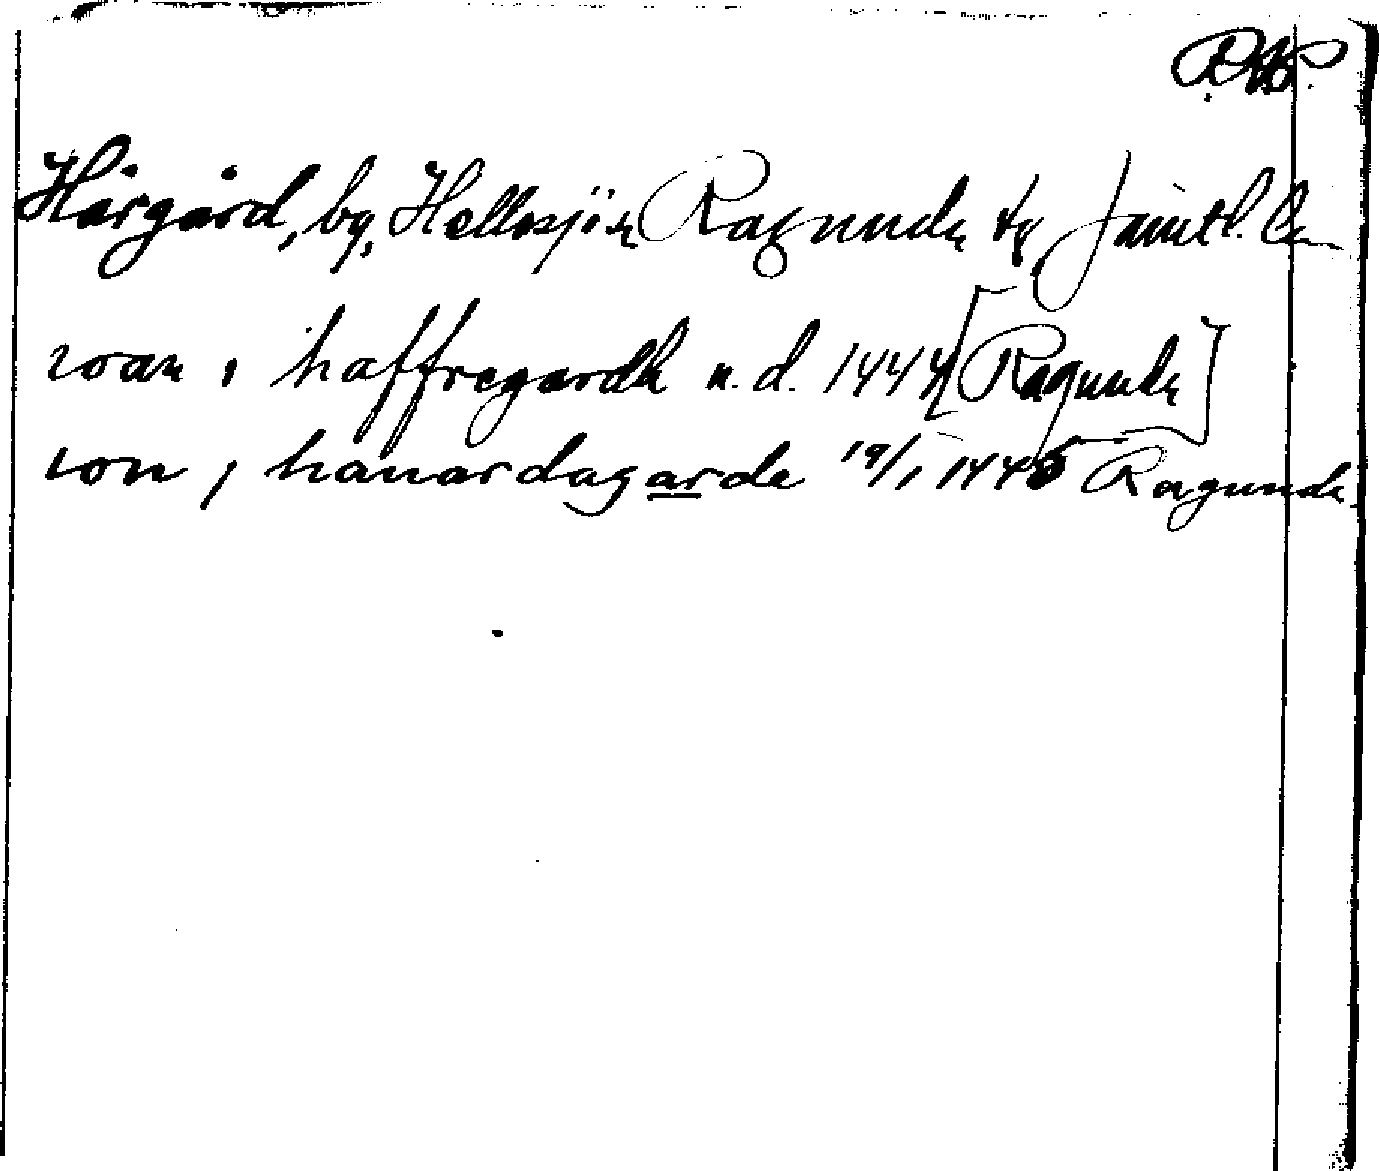 Hårgård, by, Hellesjön Ragunda tg Jämtl. l
ioan, i haffregardh u.d. 1444 [Ragunda]
ion, i hauardagarde 19/1 1445 Ragunda